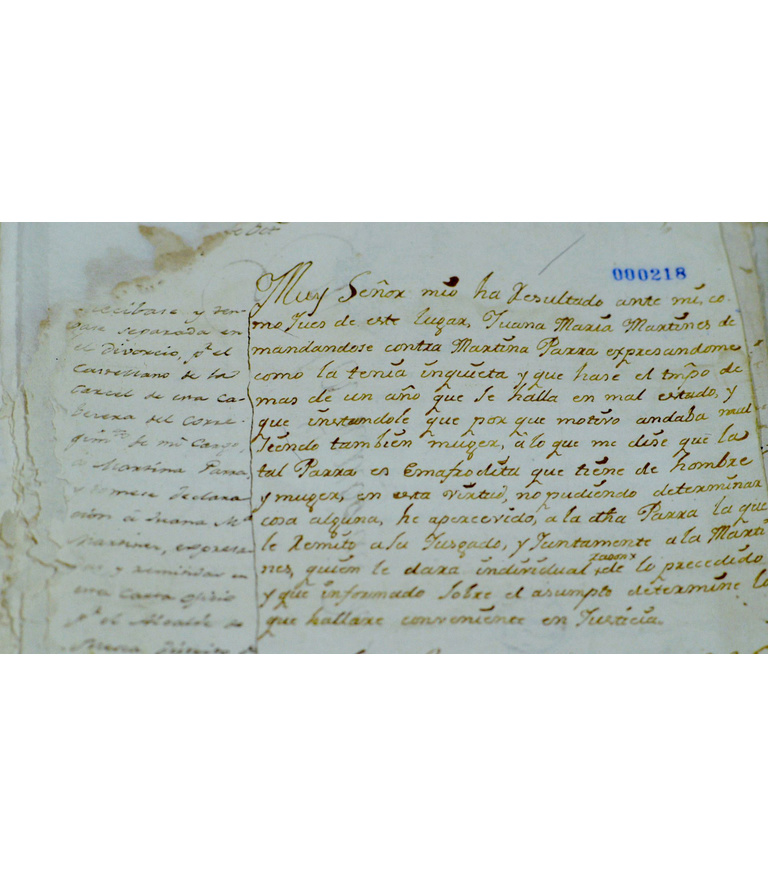 000218
Muy Señor mio ha Resultado ante mi, co-
mo Jues de este lugar, Juana Maria Martines de
mandandose contra Martina Parra expresandome
como la tenia inquieta y que hase el tmpo de
mas de un año que se halla en mal estado, y
que instandole que por que motivo andaba mal
siendo tambien muger, â lo que me dise que la
tal Parra es Emafrodita que tiene de hombre
y muger, en esta virtud, no pudiendo determinar
cosa alguna, he apercevido, a la dha Parra la que
le Remito a su Jusgado, y Juntamente a la Marti
nes, quien le dara individual razon de lo precedido
y que informado sobre el asumpto determine lo
que hallare conveniente en Justicia.
Recibase y
separada en
el divorcio, pr el
Castellano de la
Carcel de esta Ca-
becera del Corre-
gimto de mi Cargo
a Martina Parra
y tomese declara
cion â Juana Ma
Martines,
y
una Carta oficio
pr el Alcalde de